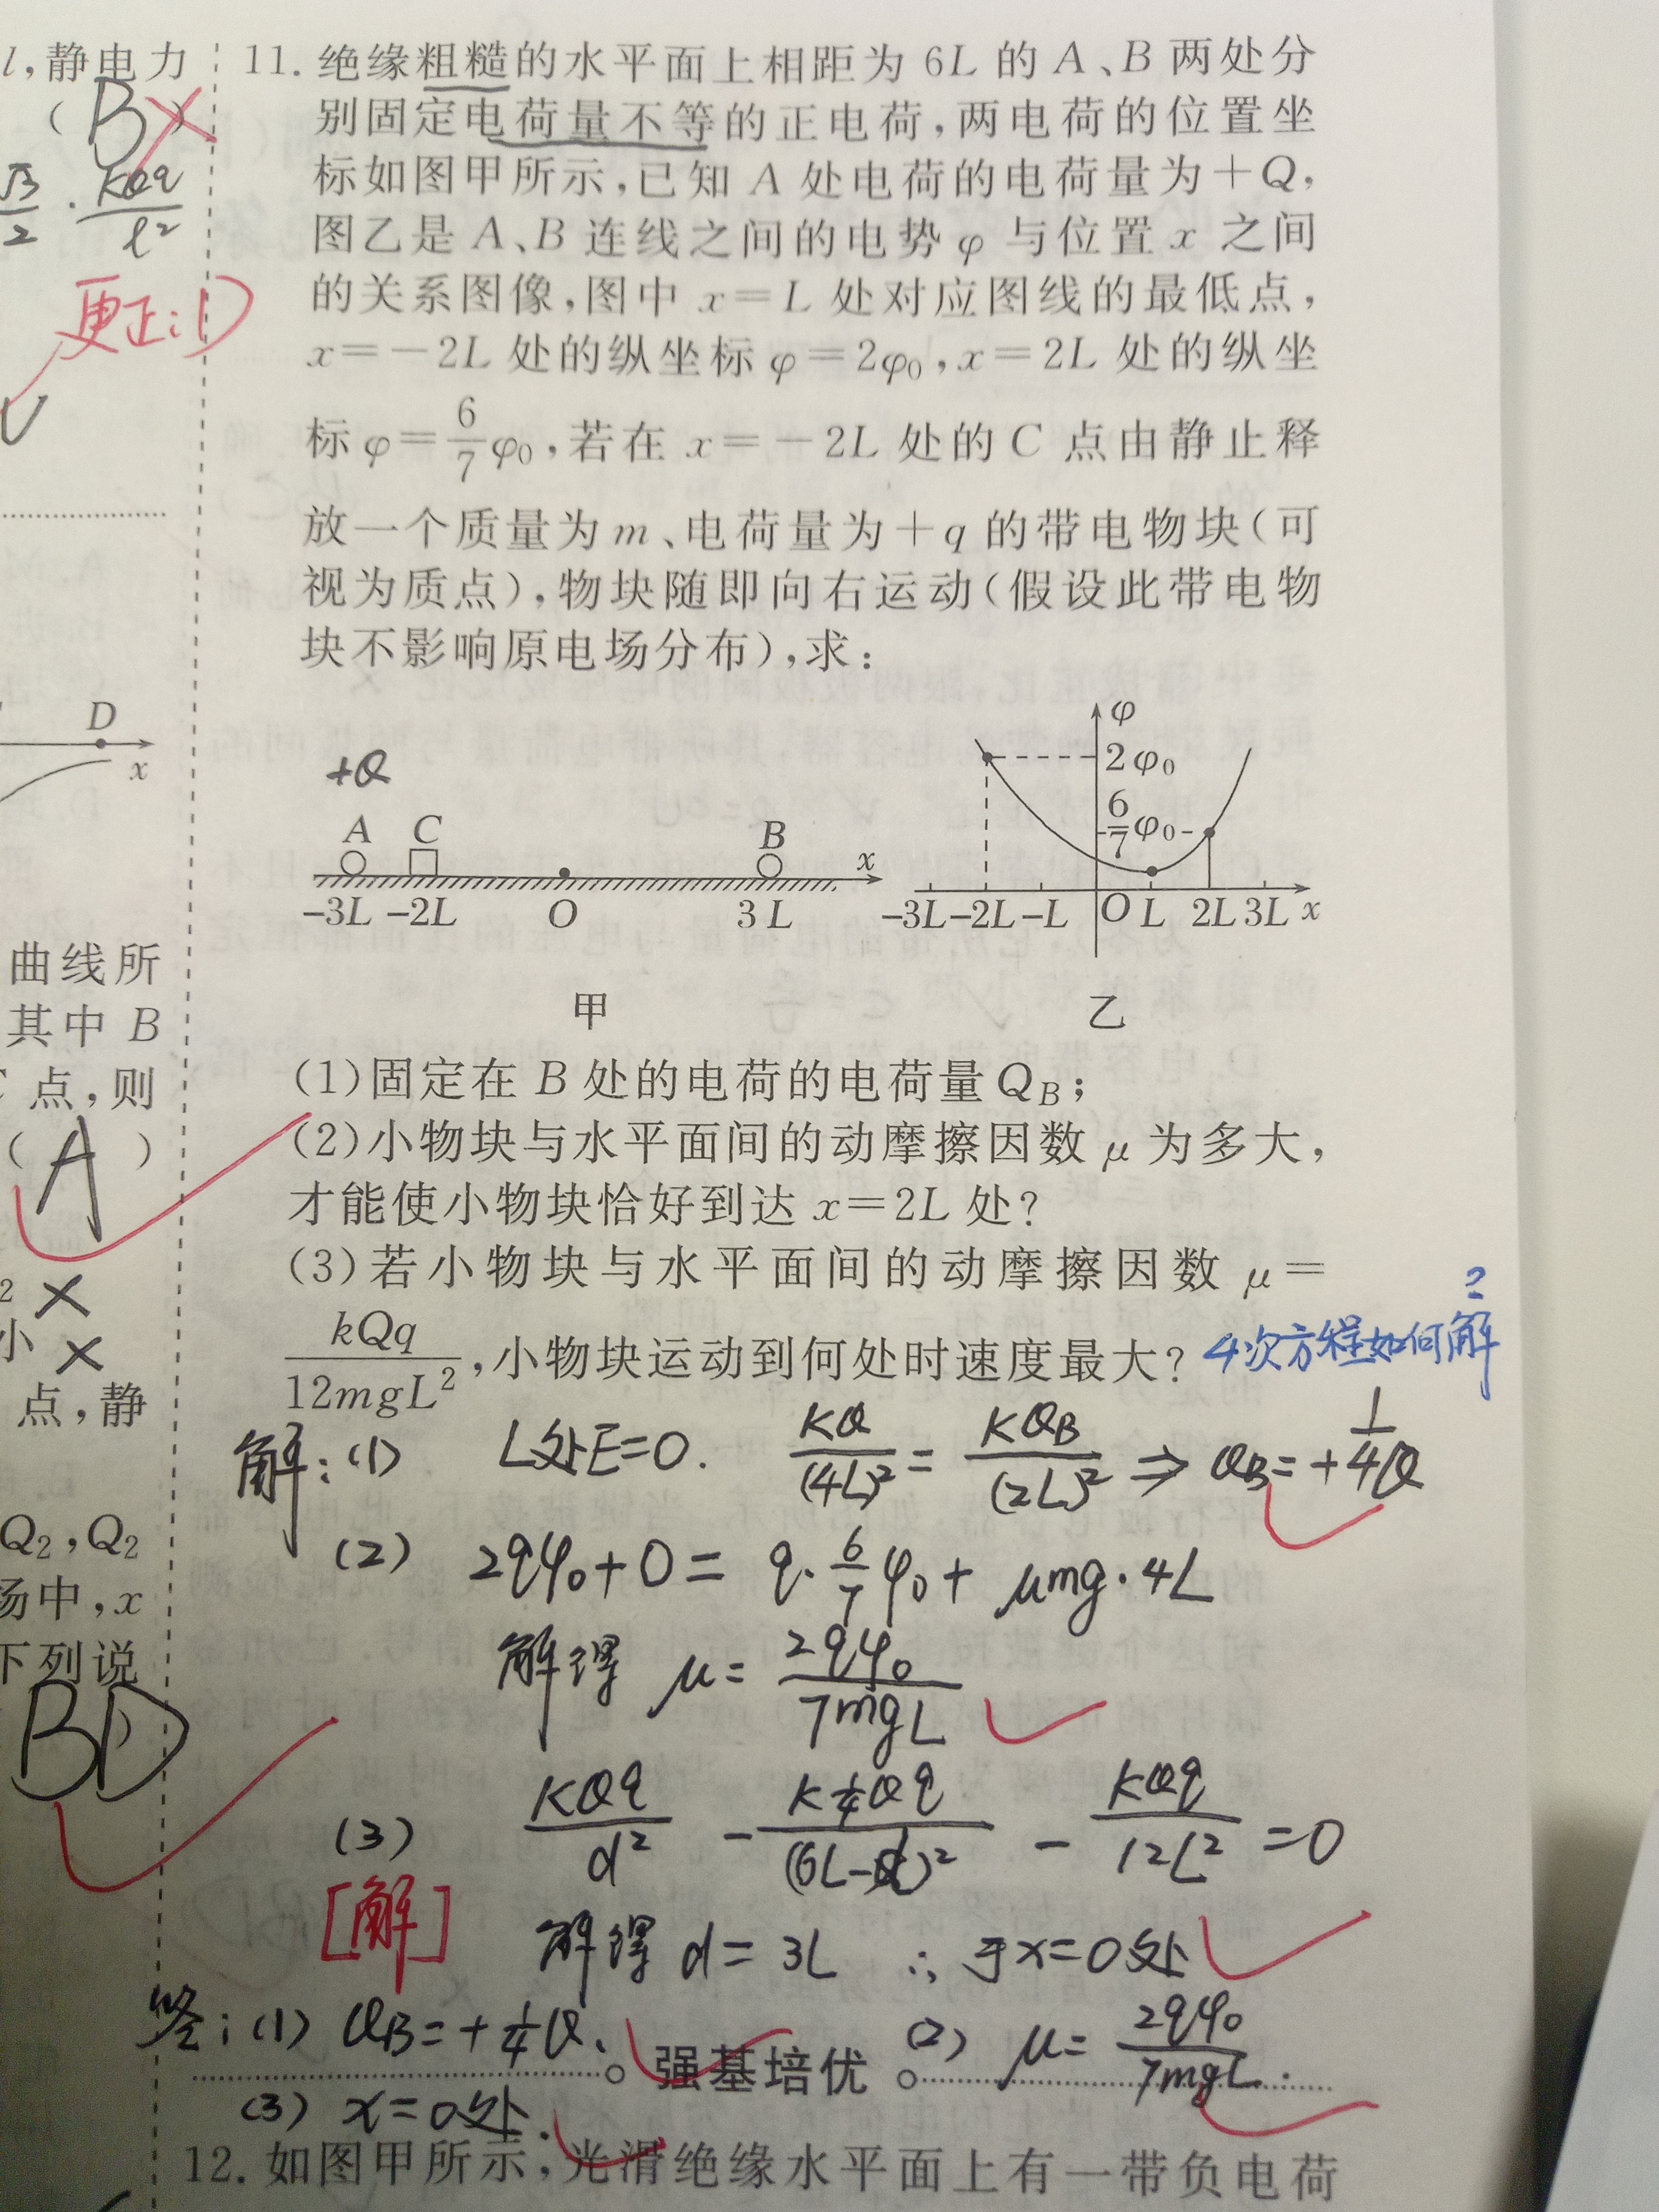 l,静电力
( B )
√3/2 · kQq/l²
更正:D
D
x
曲线所
其中 B
点,则
( A )
2 ×
小 ×
点,静
Q₂,Q₂
场中,x
下列说
BD
11. 绝缘粗糙的水平面上相距为 6L 的 A、B 两处分
别固定电荷量不等的正电荷,两电荷的位置坐
标如图甲所示,已知 A 处电荷的电荷量为+Q,
图乙是 A、B 连线之间的电势 φ 与位置 x 之间
的关系图像,图中 x=L 处对应图线的最低点,
x=-2L 处的纵坐标 φ=2φ₀,x=2L 处的纵坐
标 φ=6/7φ₀,若在 x=-2L 处的 C 点由静止释
放一个质量为 m、电荷量为+q 的带电物块(可
视为质点),物块随即向右运动(假设此带电物
块不影响原电场分布),求:
+Q
A C B x
-3L -2L O 3L
甲
φ
2φ₀
6/7φ₀
-3L -2L -L O L 2L 3L x
乙
(1)固定在 B 处的电荷的电荷量Q_B;
(2)小物块与水平面间的动摩擦因数 μ 为多大,
才能使小物块恰好到达 x=2L 处?
(3)若小物块与水平面间的动摩擦因数 μ=
kQq/12mgL²,小物块运动到何处时速度最大?
4次方程如何解?
解:(1) L处E=0. KQ/(4L)²=KQ_B/(2L)² ⇒ Q_B=+1/4Q
(2) 2qφ₀+0=q·6/7φ₀+μmg·4L
解得 μ=2qφ₀/7mgL
(3) KQq/d² - K1/4Qq/(6L-d)² - KQq/12L² =0
[解]
解得 d=3L ∴于x=0处
答:(1) Q_B=+1/4Q. (2) μ=2qφ₀/7mgL.
强基培优
(3) x=0处.
12. 如图甲所示,光滑绝缘水平面上有一带负电荷